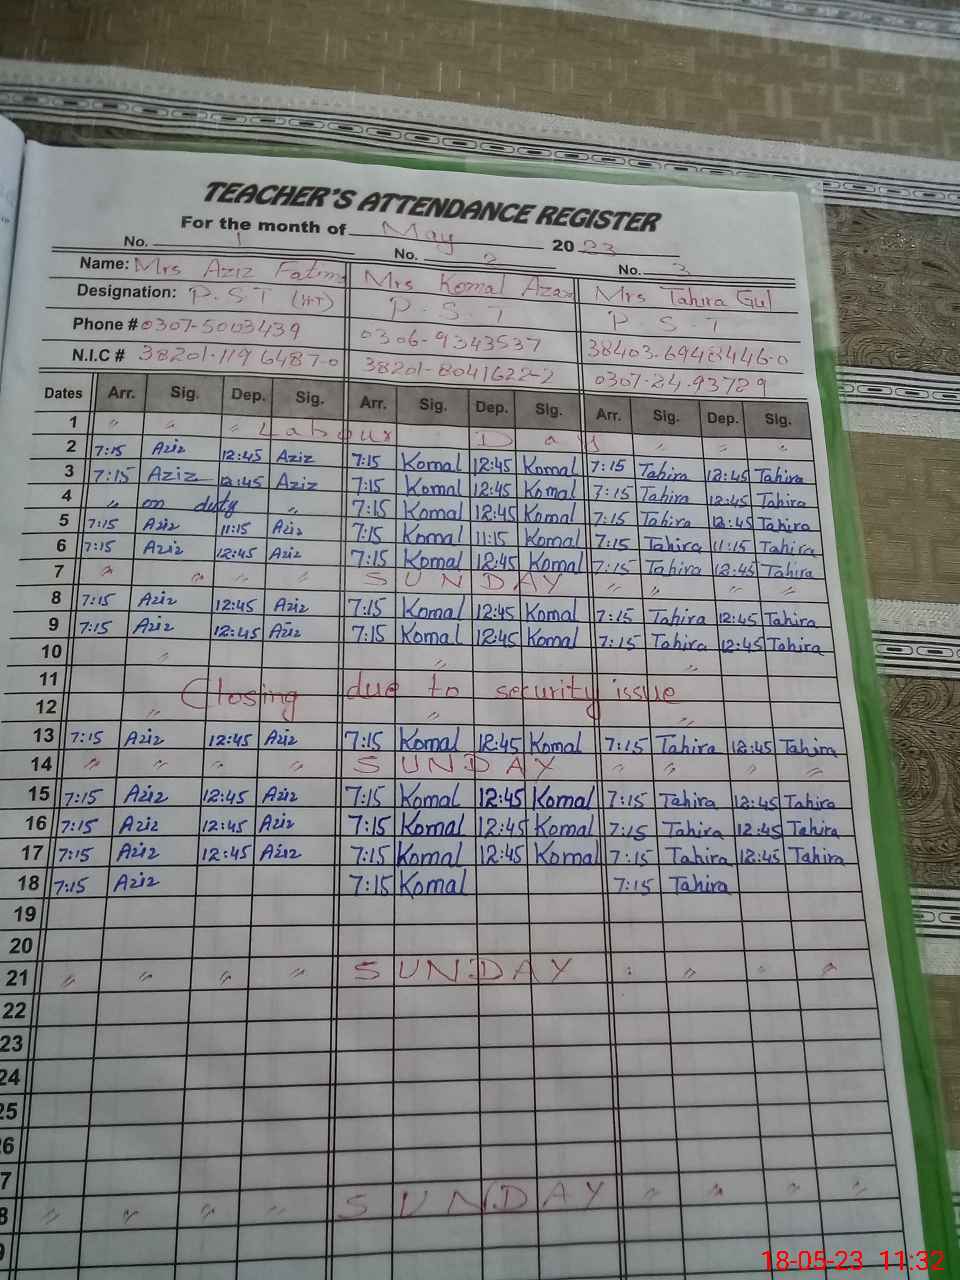 TEACHER'S ATTENDANCE REGISTER
For the month of May 2023
No. 1 No. 2 No. 3
Name: Mrs Aziz Fatima Mrs Komal Azam Mrs Tahira Gul
Designation: P.S.T (H.T) P.S.T P.S.T
Phone # 0307-5003439 0306-9343537 38403-6948446-0
N.I.C # 38201-1196487-0 38201-8041622-2 0307-24.93729
Dates Arr. Sig. Dep. Sig. Arr. Sig. Dep. Sig. Arr. Sig. Dep. Sig.
1 " " " Labour Day " " "
2 7:15 Aziz 12:45 Aziz 7:15 Komal 12:45 Komal 7:15 Tahira 12:45 Tahira
3 7:15 Aziz 12:45 Aziz 7:15 Komal 12:45 Komal 7:15 Tahira 12:45 Tahira
4 " on duty " 7:15 Komal 12:45 Komal 7:15 Tahira 12:45 Tahira
5 7:15 Aziz 11:15 Aziz 7:15 Komal 11:15 Komal 7:15 Tahira 11:15 Tahira
6 7:15 Aziz 12:45 Aziz 7:15 Komal 12:45 Komal 7:15 Tahira 12:45 Tahira
7 " " " " SUNDAY " " " "
8 7:15 Aziz 12:45 Aziz 7:15 Komal 12:45 Komal 7:15 Tahira 12:45 Tahira
9 7:15 Aziz 12:45 Aziz 7:15 Komal 12:45 Komal 7:15 Tahira 12:45 Tahira
10 " " "
11 Closing due to security issue
12 " " "
13 7:15 Aziz 12:45 Aziz 7:15 Komal 12:45 Komal 7:15 Tahira 12:45 Tahira
14 " " " " SUNDAY " " " "
15 7:15 Aziz 12:45 Aziz 7:15 Komal 12:45 Komal 7:15 Tahira 12:45 Tahira
16 7:15 Aziz 12:45 Aziz 7:15 Komal 12:45 Komal 7:15 Tahira 12:45 Tahira
17 7:15 Aziz 12:45 Aziz 7:15 Komal 12:45 Komal 7:15 Tahira 12:45 Tahira
18 7:15 Aziz 7:15 Komal 7:15 Tahira
19
20
21 " " " " SUNDAY " " " "
22
23
24
25
26
7
8 " " " " SUNDAY " " " "
9
18-05-23 11:32